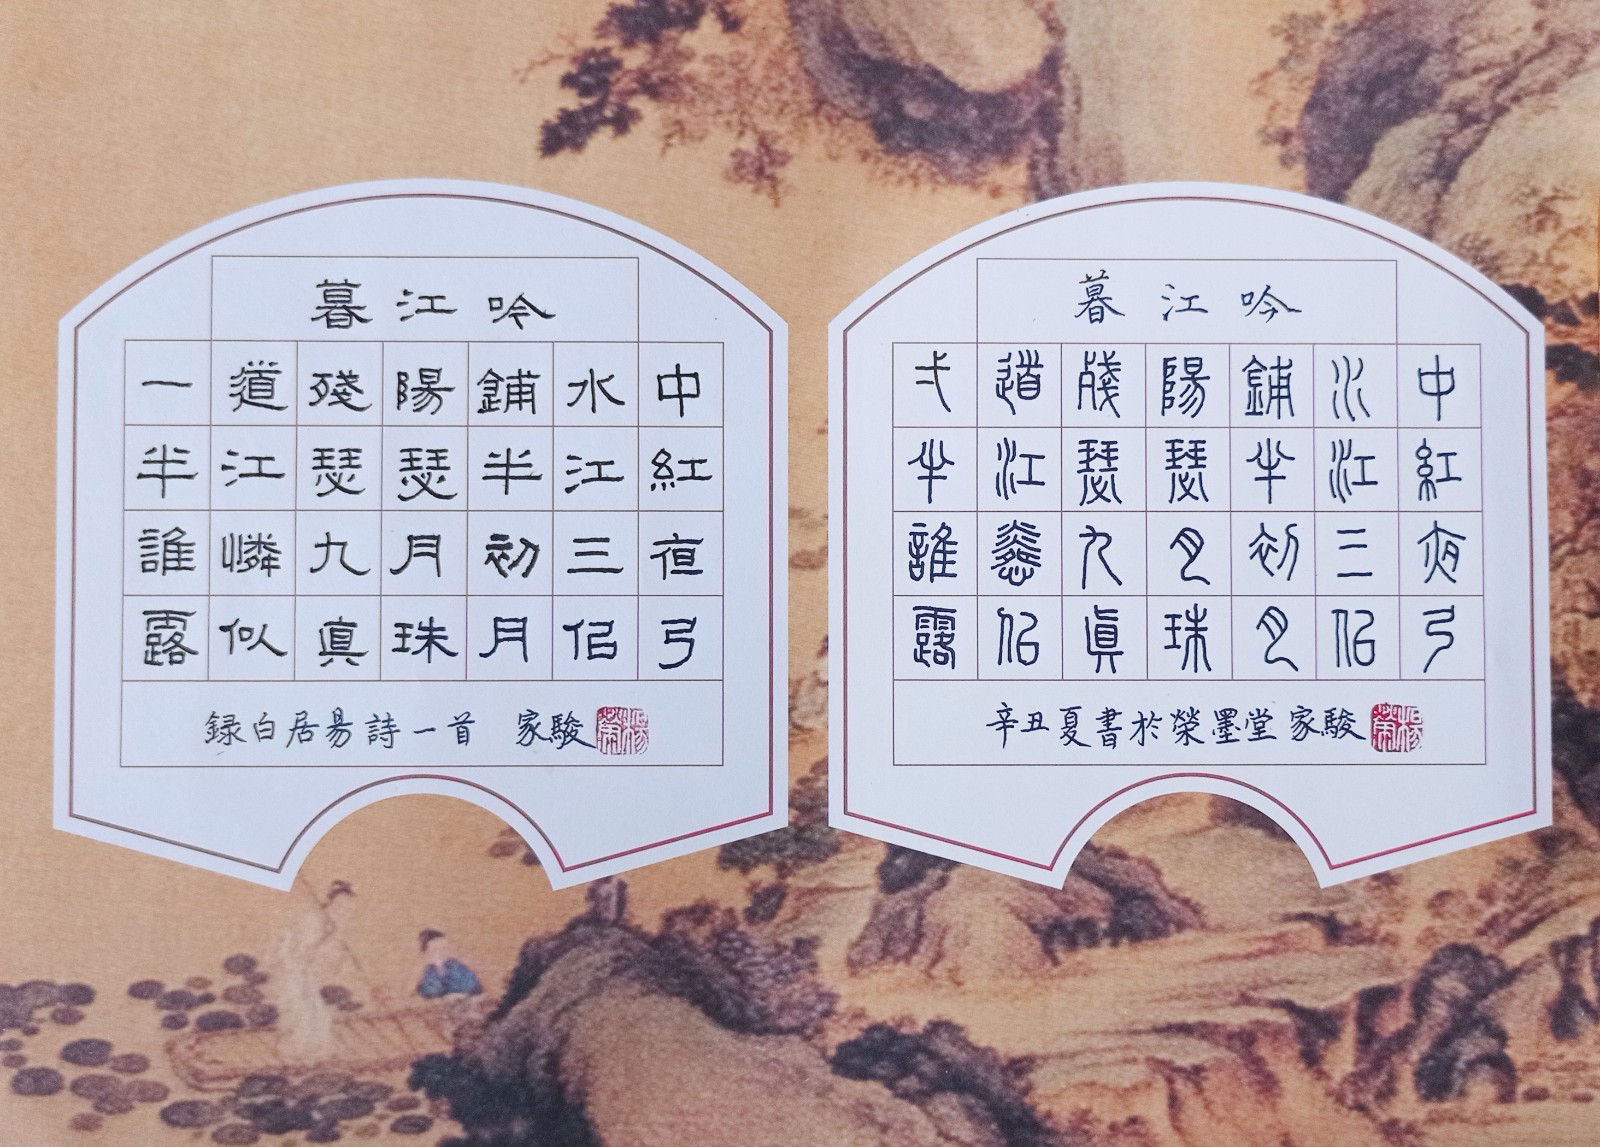 暮江吟
一道殘陽鋪水中
半江瑟瑟半江紅
誰憐九月初三夜
露似真珠月佀弓
録白居易詩一首 家駿
暮江吟
弌道殘陽鋪水中
半江瑟瑟半江紅
誰憐九月初三夜
露佀真珠月佀弓
辛丑夏書於榮墨堂 家駿